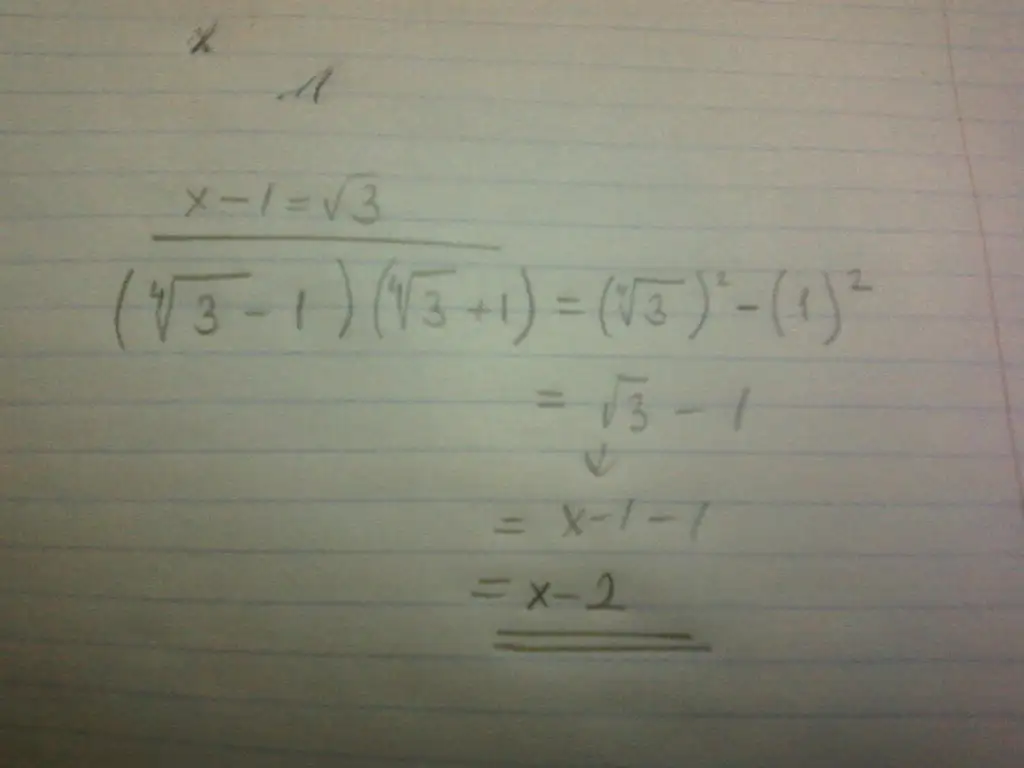 x
1
x - 1 = √3
(∜3 - 1)(∜3 + 1) = (∜3)² - (1)²
= √3 - 1
↓
= x - 1 - 1
= x - 2